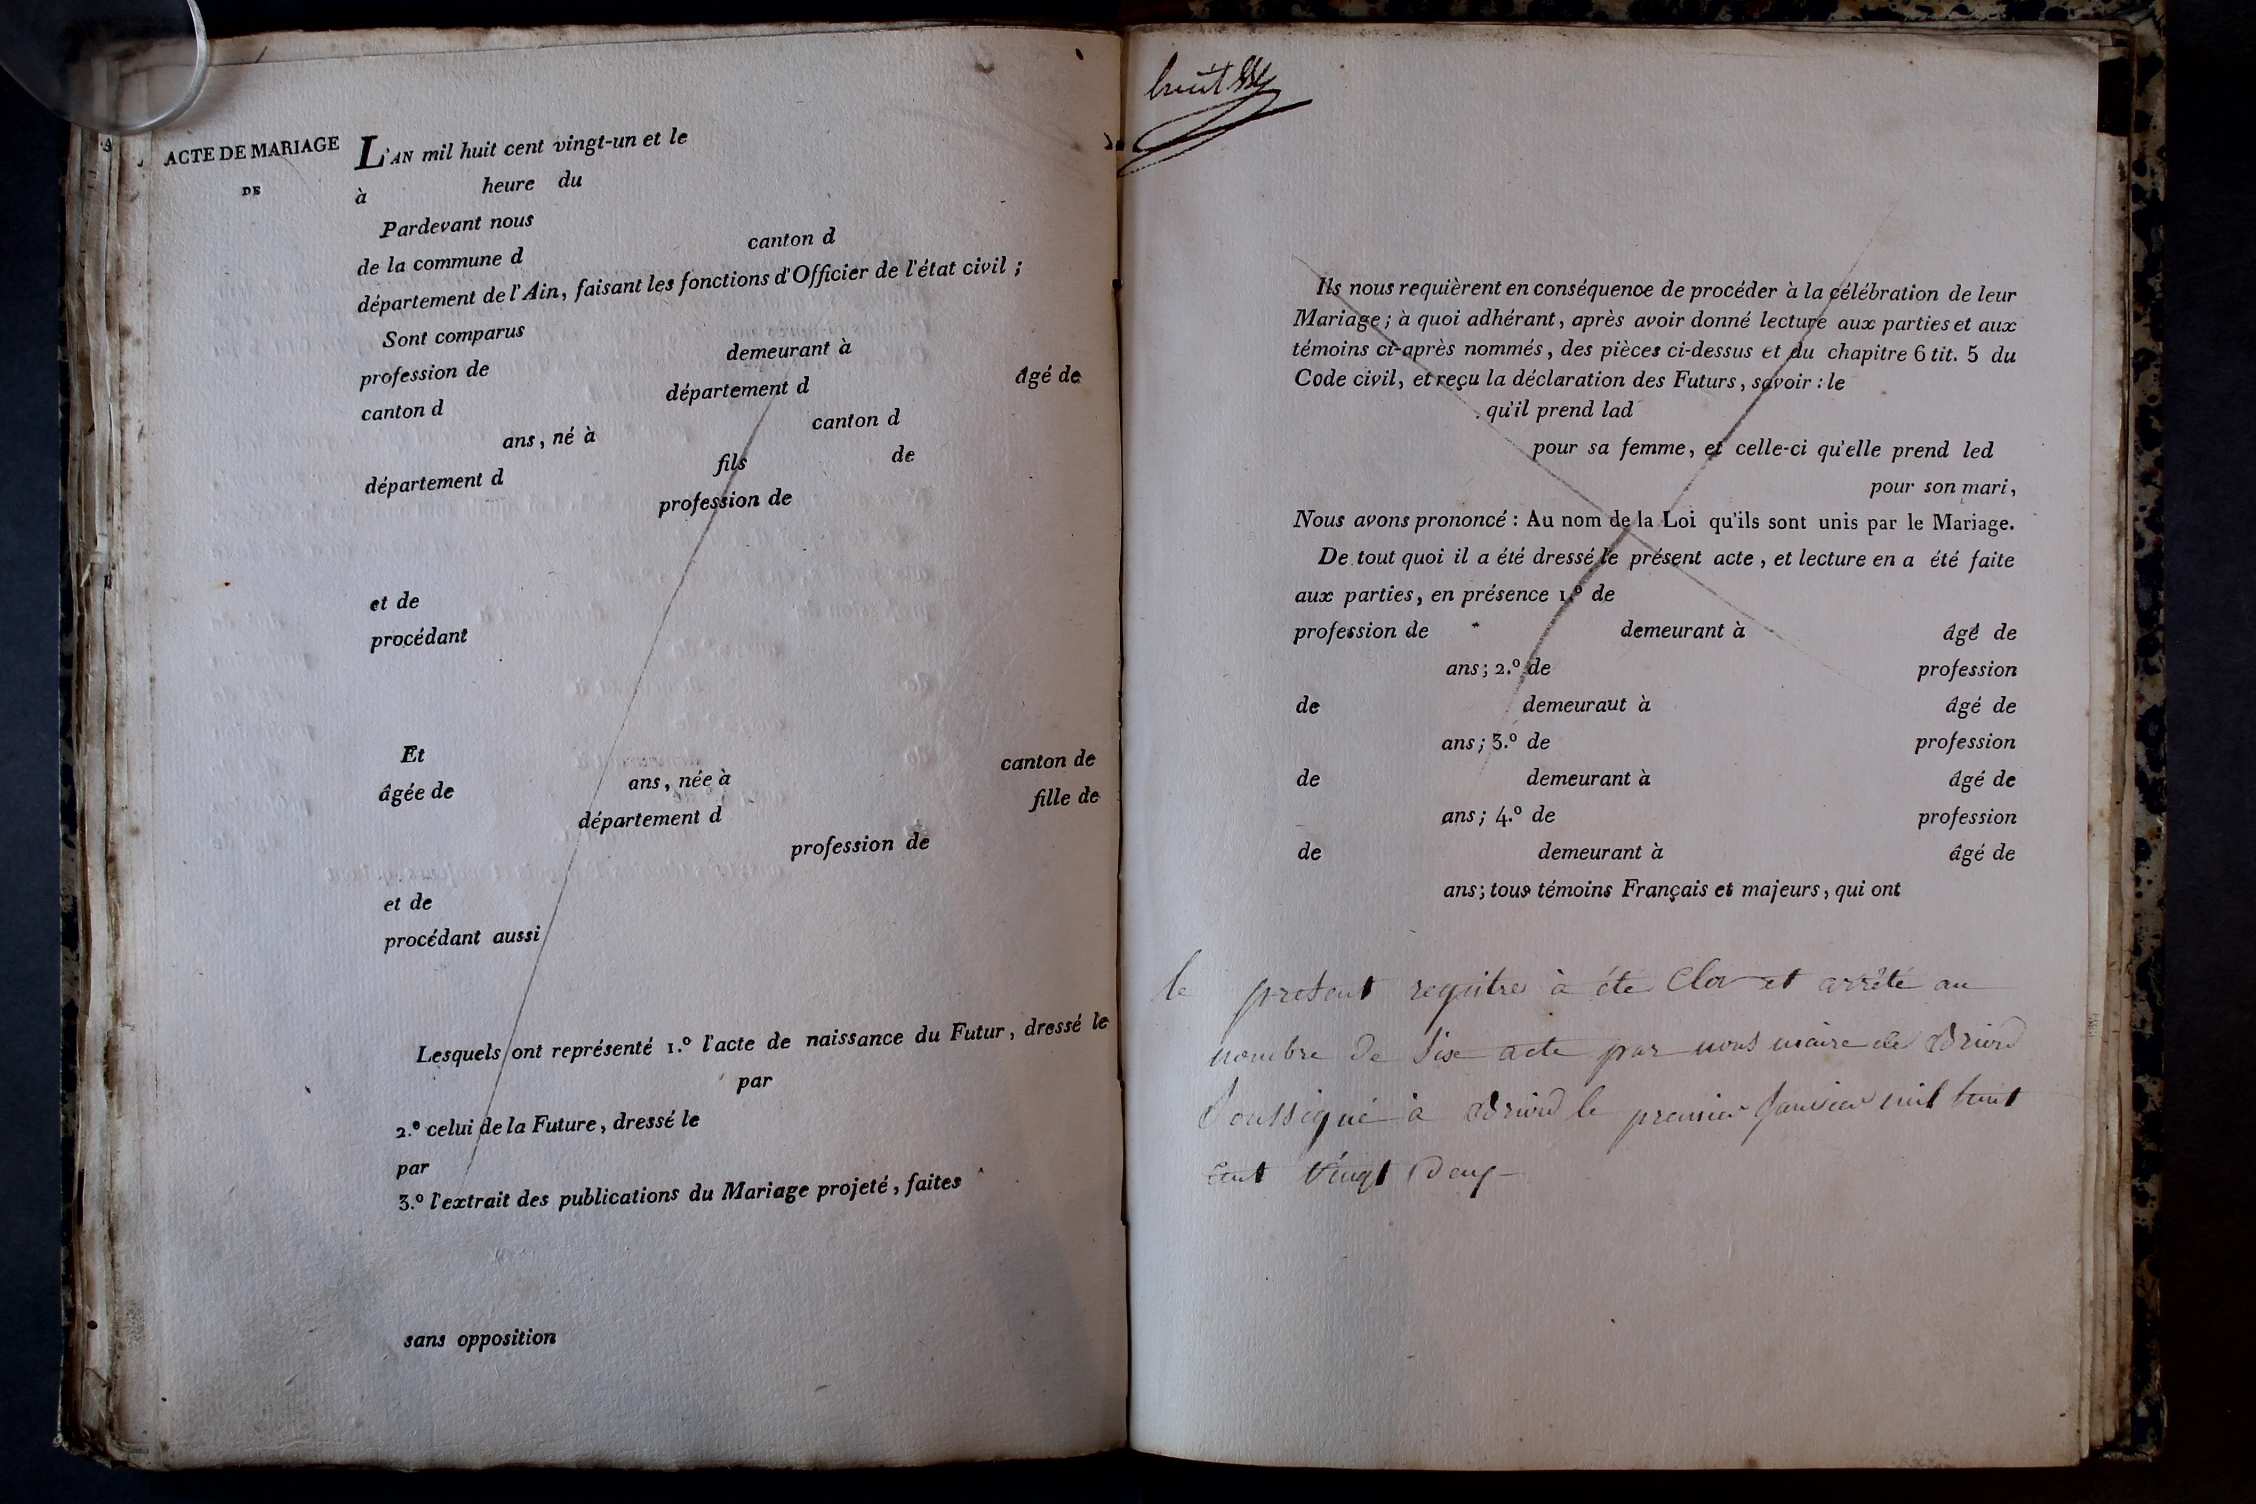 ACTE DE MARIAGE
DE
L'AN mil huit cent vingt-un et le
à heure du
Pardevant nous
de la commune d canton d
département de l'Ain, faisant les fonctions d'Officier de l'état civil ;
Sont comparus
profession de demeurant à
canton d département d âgé de
ans, né à canton d
département d fils de
profession de
et de
procédant
Et
âgée de ans, née à canton de
département d fille de
profession de
et de
procédant aussi
Lesquels ont représenté 1.º l'acte de naissance du Futur, dressé le
par
2.º celui de la Future, dressé le
par
3.º l'extrait des publications du Mariage projeté, faites
sans opposition
huit
Ils nous requièrent en conséquence de procéder à la célébration de leur
Mariage; à quoi adhérant, après avoir donné lecture aux parties et aux
témoins ci-après nommés, des pièces ci-dessus et du chapitre 6 tit. 5 du
Code civil, et reçu la déclaration des Futurs, savoir : le
qu'il prend lad
pour sa femme, et celle-ci qu'elle prend led
pour son mari,
Nous avons prononcé : Au nom de la Loi qu'ils sont unis par le Mariage.
De tout quoi il a été dressé le présent acte, et lecture en a été faite
aux parties, en présence 1.º de
profession de demeurant à âgé de
ans; 2.º de profession
de demeuraut à âgé de
ans; 3.º de profession
de demeurant à âgé de
ans; 4.º de profession
de demeurant à âgé de
ans; tous témoins Français et majeurs, qui ont
le présent registre à été Clos et arrêté au
nombre de Six acte par nous maire de Briord
Soussigné à Briord le premier Janvier mil huit
Cent vingt Deux